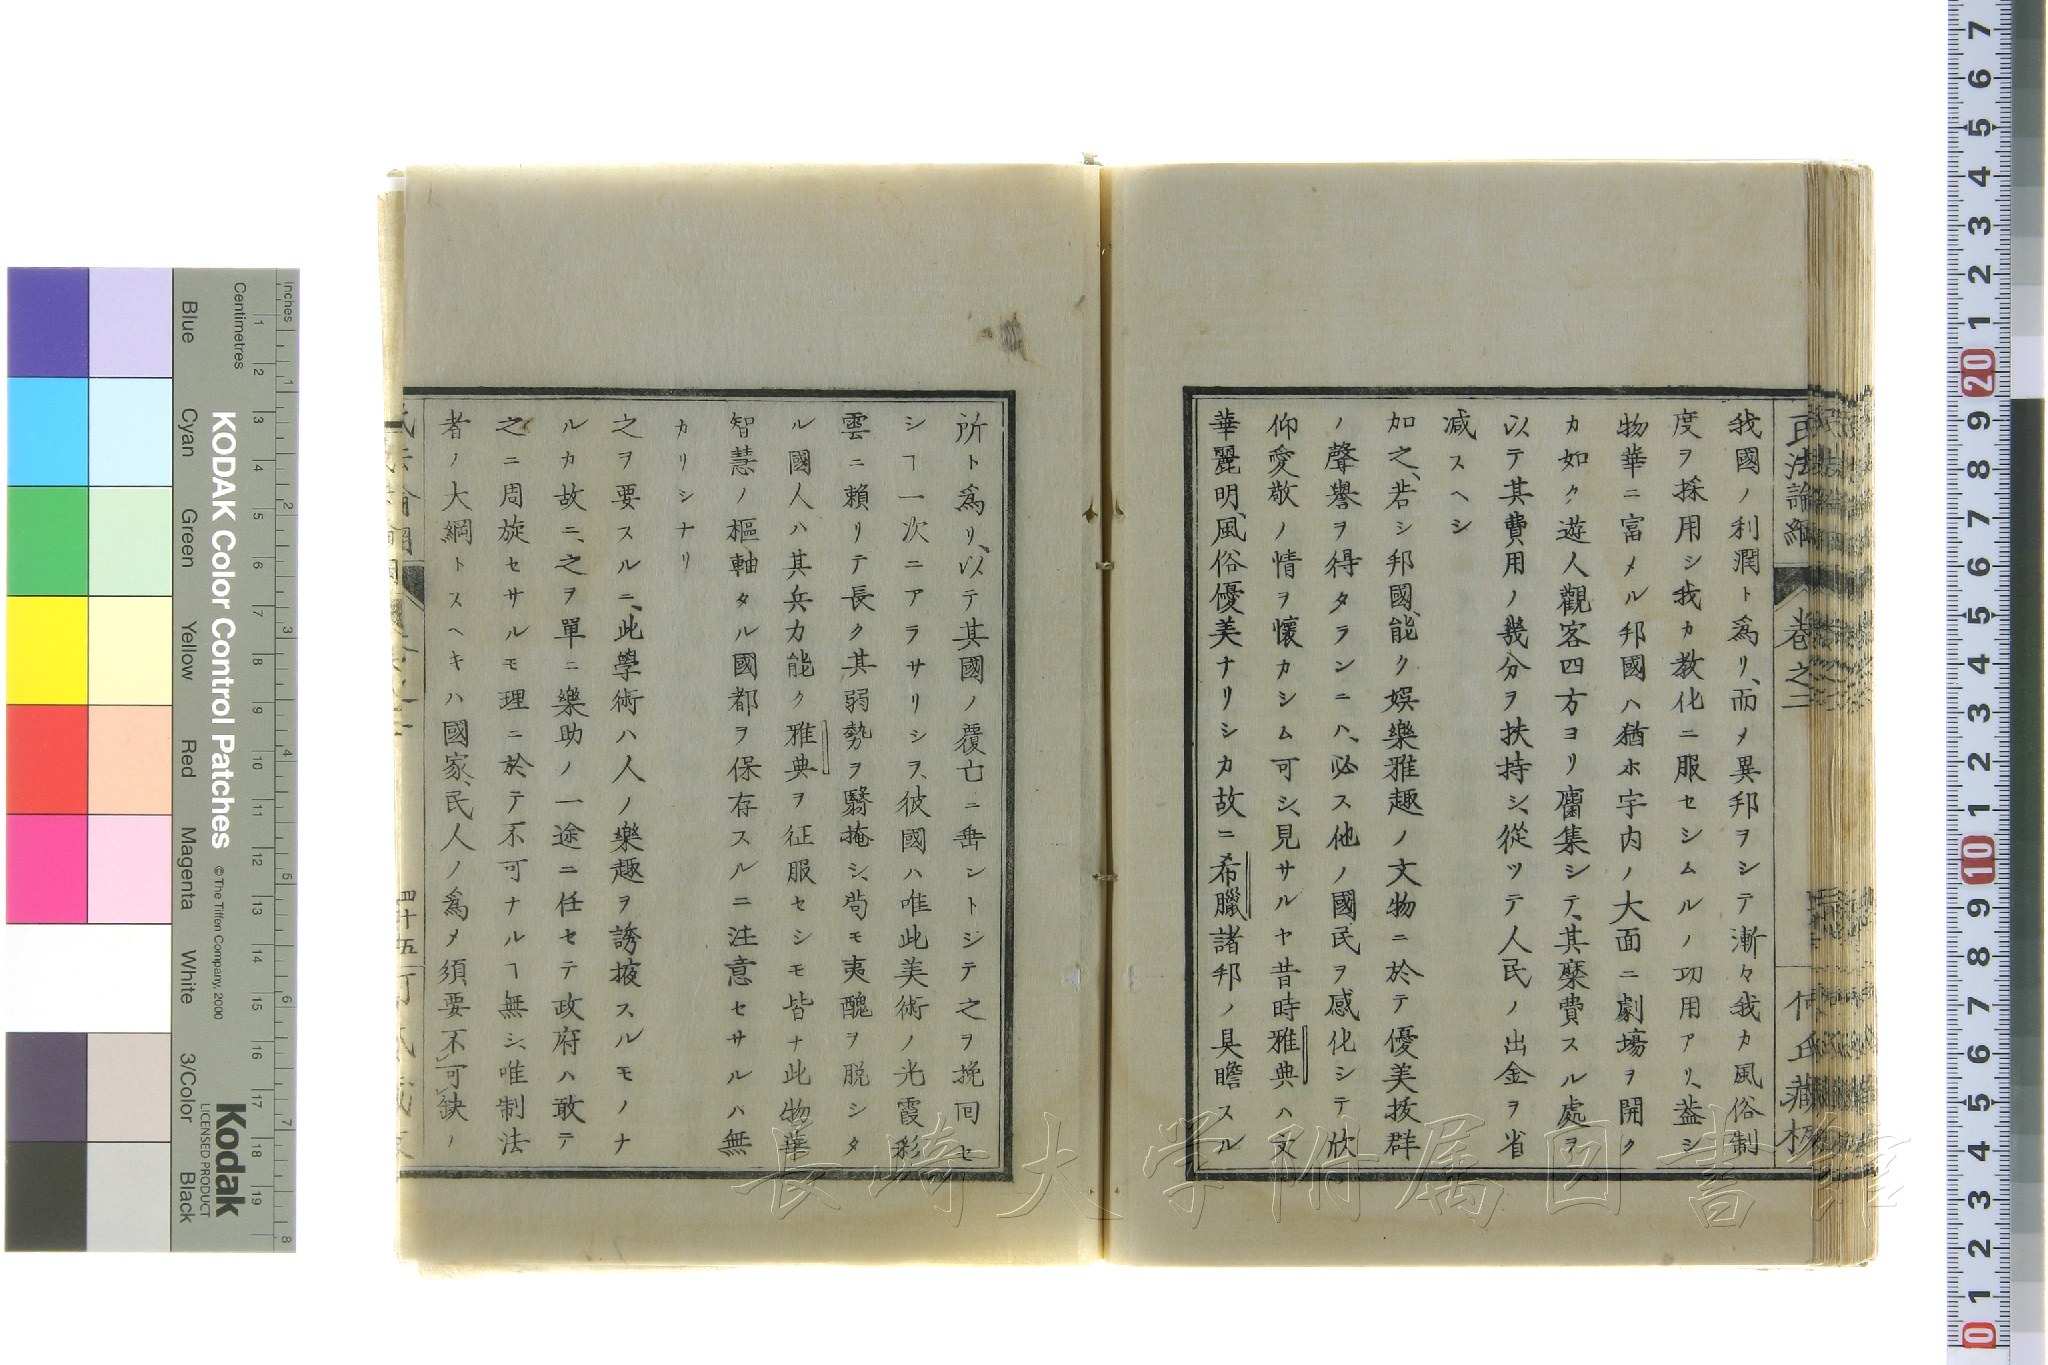 我國ノ利潤ト爲リ、而メ異邦ヲシテ漸々我カ風俗制
度ヲ採用シ我カ教化ニ服セシムルノ功用アリ、蓋シ
物華ニ富メル邦國ハ猶ホ宇内ノ大面ニ劇場ヲ開ク
カ如ク遊人觀客四方ヨリ麕集シテ、其糜費スル處ヲ
以テ其費用ノ幾分ヲ扶持シ、從ツテ人民ノ出金ヲ省
减スヘシ
加之、若シ邦國、能ク娯樂雅趣ノ文物ニ於テ優美拔群
ノ聲譽ヲ得タランニハ、必ス他ノ國民ヲ感化シテ欣
仰愛敬ノ情ヲ懷カシム可シ、見サルヤ昔時雅典ハ文
華麗明、風俗優美ナリシカ故ニ希臘諸邦ノ具瞻スル
所ト爲リ、以テ其國ノ覆亡ニ垂ントシテ之ヲ挽回セ
シヿ一次ニアラサリシヲ、彼國ハ唯此美術ノ光霞彩
雲ニ賴リテ長ク其弱勢ヲ翳掩シ、苟モ夷醜ヲ脱シタ
ル國人ハ其兵力能ク雅典ヲ征服セシモ皆ナ此物華
智慧ノ樞軸タル國都ヲ保存スルニ注意セサルハ無
カリシナリ
之ヲ要スルニ、此學術ハ人ノ樂趣ヲ誘掖スルモノナ
ルカ故ニ、之ヲ單ニ樂助ノ一途ニ任セテ政府ハ敢テ
之ニ周旋セサルモ理ニ於テ不可ナルヿ無シ、唯制法
者ノ大綱トスヘキハ國家、民人ノ爲メ須要不可缺ノ
卷之二
何丘藏板
四十五
長崎大学附属図書館
KODAK Color Control Patches
© The Tiffen Company, 2000
Kodak
LICENSED PRODUCT
Inches
Centimetres
Blue
Cyan
Green
Yellow
Red
Magenta
White
3/Color
Black